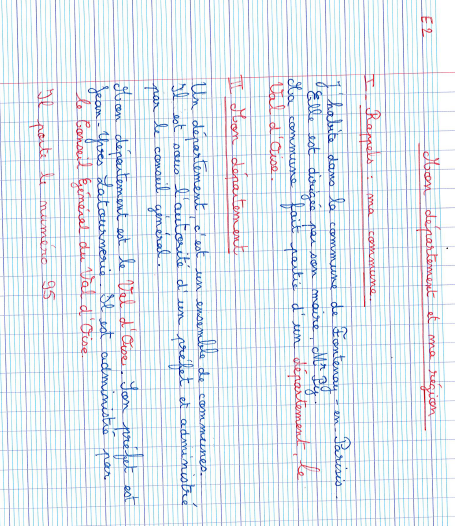 E2
Mon département et ma région
I - Rappels : ma commune
J'habite dans la commune de Fontenay-en-Parisis.
Elle est dirigée par son maire, Mr Py.
Ma commune fait partie d'un département, le
Val d'Oise.
II Mon département
Un département, c'est un ensemble de communes.
Il est sous l'autorité d'un préfet et administré
par le conseil général.
Mon département est le Val d'Oise. Son préfet est
Jean-Yves Latournerie. Il est administré par
le Conseil Général du Val d'Oise.
Il porte le numéro 95